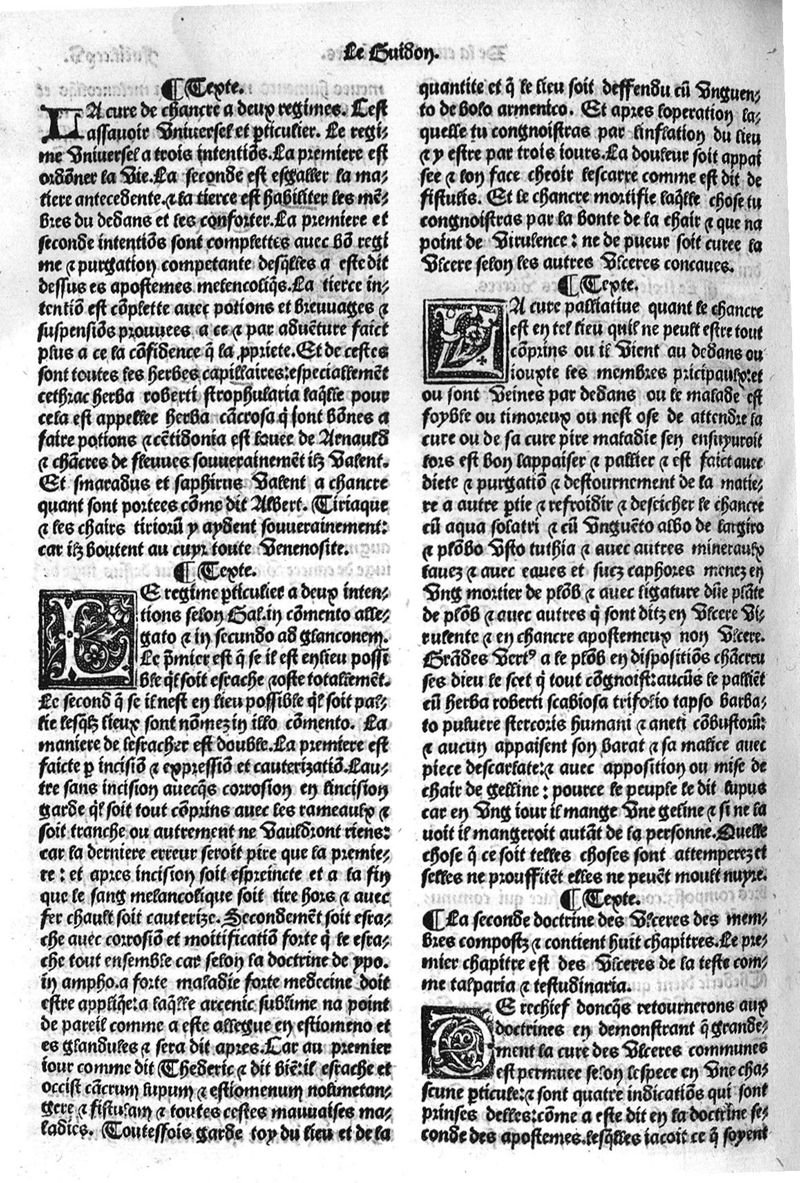 Le Guidon.
¶ Texte.
LA cure de chancre a deux regimes. Cest
assavoir Universel et pticulier. Le regi-
me Universel a trois intentiõs. La premiere est
ordõner la Vie. La seconde est esgaller la ma-
tiere antecedente. ⁊ la tierce est habiliter les mẽ-
bres du dedans et les conforter. La premiere et
seconde intentiõs sont complettes avec bõ regi
me ⁊ purgation competante desq̃lles a este dit
dessus es apostemes melencoliq̃s. La tierce in-
tentiõ est cõplette avec potions et breuvages ⁊
suspensiõs prouvees a ce ⁊ par advẽture faict
plus a ce la cõfidence q̃ la ppriete. Et de cestes
sont toutes les herbes capillaires: especiallemẽt
cethrac herba roberti strophularia laq̃lle pour
cela est appellee herba cãcrosa q̃ sont bõnes a
faire potions ⁊ cẽtidonia est louee de Arnauld
⁊ chãcres de fleuves souverainemẽt ilz Valent.
Et smaradus et saphirus Valent a chancre
quant sont portees cõme dit Albert. Tiriaque
⁊ les chairs tirioruʒ y aydent souverainemẽt:
car ilz boutent au cuyr toute Venenosite.
¶ Texte.
LE regime pticulier a deux inten-
tions selon Gal. in cõmento alle-
gato ⁊ in secundo ad glanconem.
Le p̃mier est q̃ se il est en lieu possi
ble q̃l soit esrache ⁊ oste totallemẽt.
Le second q̃ se il nest en lieu possible q̃l soit pal-
lie lesq̃lz lieux sont nõmez in illo cõmento. La
maniere de lesracher est double. La premiere est
faicte p incisiõ ⁊ expressiõ et cauterizatiõ. Lau-
tre sans incision avecq̃s corrosion en lincision
garde q̃l soit tout cõprins avec les rameaulx ⁊
soit tranche ou autrement ne Vauldront riens:
car la derniere erreur seroit pire que la premie-
re: et apres incision soit espreincte et a la fin
que le sang melancolique soit tire hors ⁊ avec
fer chault soit cauterize. Secondemẽt soit esra-
che avec corrosiõ et moitificatiõ forte q̃ le esra-
che tout ensemble car selon la doctrine de ypo.
in ampho. a forte maladie forte medecine doit
estre appliq̃e: a laq̃lle arcenic sublime na point
de pareil comme a este allegue en estiomeno et
es glandules ⁊ sera dit apres. Car au premier
iour comme dit Thederic ⁊ dit biẽ: il esrache et
occist cãcrum lupum ⁊ estiomenum nolimetan-
gere ⁊ fistulam ⁊ toutes cestes mauvaises ma-
ladies. Toutesfois garde toy du lieu et de la
quantite et q̃ le lieu soit deffendu cũ Vnguen-
to de bolo armenico. Et apres loperation la-
quelle tu congnoistras par linflation du lieu
⁊ y estre par trois iours. La douleur soit appai
see ⁊ lon face cheoir lescarre comme est dit de
fistulis. Et le chancre mortifie laq̃lle chose tu
congnoistras par la bonte de la chair ⁊ que na
point de Virulence: ne de pueur soit curee la
Vlcere selon les autres Vlceres concaves.
¶ Texte.
LA cure palliative quant le chancre
est en tel lieu quil ne peult estre tout
cõprins ou il Vient au dedans ou
iouxte les membres pricipaulx: et
ou sont Veines par dedans ou le malade est
foyble ou timoreux ou nest ose de attendre la
cure ou de sa cure pire maladie sen ensuyvroit
lors est bon lappaiser ⁊ pallier ⁊ est faict avec
diete ⁊ purgatiõ ⁊ destournement de la matie-
re a autre ptie ⁊ refroidir ⁊ descicher le chancre
cũ aqua solatri ⁊ cũ Vnguẽto albo de largiro
⁊ plõbo Vsto tuthia ⁊ avec autres mineraulx
lavez ⁊ avec eaves et sucz caphores menez en
Vng mortier de plõb ⁊ avec ligature dũe plate
de plõb ⁊ avec autres q̃ sont ditz en Vlcere Vi-
rulente ⁊ en chancre apostemeux non Vlcere.
Grãdes Vertꝰ a le plõb en dispositiõs chãcreu
ses dieu le scet q̃ tout cõgnoist: aucũs le palliẽt
cũ herba roberti scabiosa trifolio tapso barba-
to pulvere stercoris humani ⁊ aneti cõbustoruʒ:
⁊ aucun appaisent son barat ⁊ sa malice avec
piece descarlate: ⁊ avec apposition ou mise de
chair de gelline: pource le peuple le dit lupus
car en Vng iour il mange Vne geline ⁊ si ne la
uoit il mangeroit autãt de la personne. Quelle
chose q̃ ce soit telles choses sont attemperez et
selles ne prouffitẽt elles ne peuẽt moult nuyre.
¶ Texte.
¶ La seconde doctrine des Vlceres des mem-
bres compostz ⁊ contient huit chapitres. Le pre-
mier chapitre est des Vlceres de la teste com-
me talparia ⁊ testudinaria.
DE rechief doncq̃s retournerons aux
doctrines en demonstrant q̃ grande-
ment la cure des Vlceres communes
est permuee selon lespece en Vne cha-
scune pticule: ⁊ sont quatre indicatiõs qui sont
prinses delles: cõme a este dit en la doctrine se-
conde des apostemes. lesq̃lles iacoit ce q̃ soyent